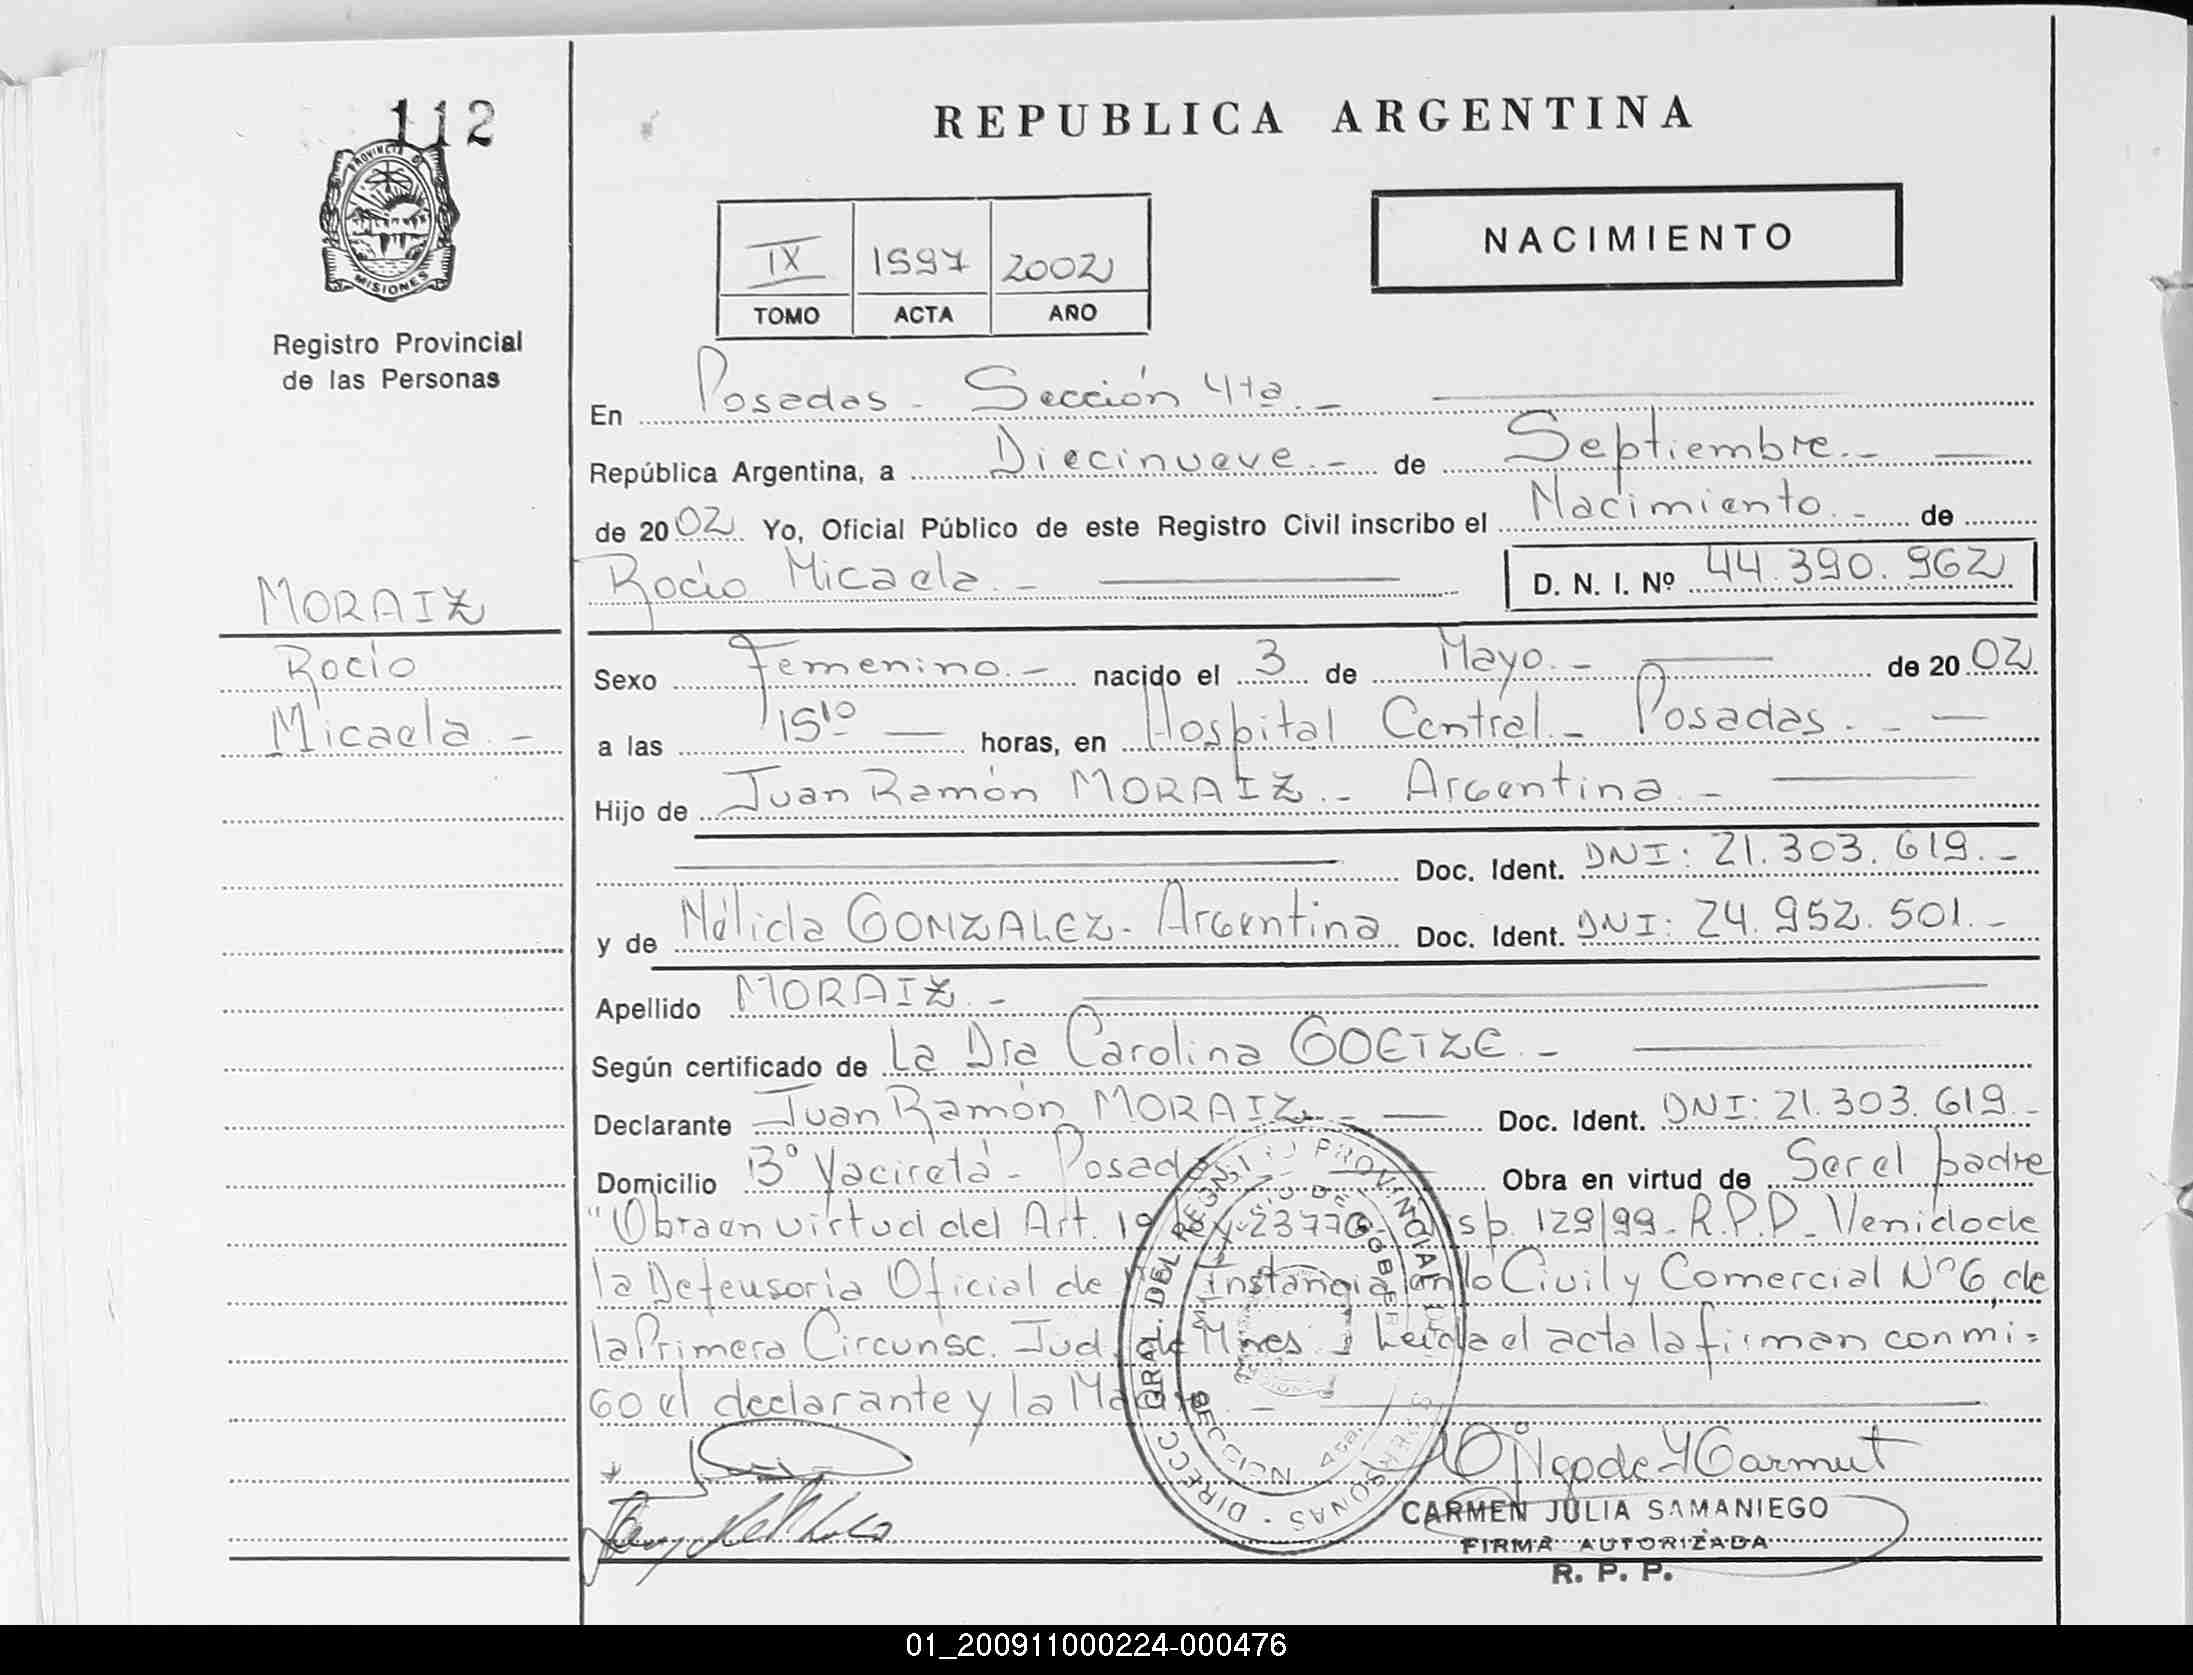 112
PROVINCIA DE
MISIONES
Registro Provincial
de las Personas
MORAIZ
Rocío
Micaela.-
REPUBLICA ARGENTINA
NACIMIENTO
IX 1597 2002
TOMO ACTA AÑO
En Posadas - Sección 4ta.-
República Argentina, a Diecinueve.- de Septiembre.-
de 2002 Yo, Oficial Público de este Registro Civil inscribo el Nacimiento.- de
Rocío Micaela.- D. N. I. Nº 44.390.962
Sexo Femenino.- nacido el 3 de Mayo.- de 2002
a las 15 10 horas, en Hospital Central.- Posadas.-
Hijo de Juan Ramón MORAIZ.- Argentina.-
Doc. Ident. DNI: 21.303.619.-
y de Nélida GONZALEZ- Argentina Doc. Ident. DNI: 24.952.501.-
Apellido MORAIZ.-
Según certificado de La Dra Carolina GOETZE.-
Declarante Juan Ramón MORAIZ.- Doc. Ident. DNI: 21.303.619.-
Domicilio Bº Yacireta- Posadas Obra en virtud de Ser el padre
"Obra en virtud del Art. 1º Ley 23776 Disp. 129/99- R.P.P- Venido de
la Defensoría Oficial de Instancia en lo Civil y Comercial Nº 6, de
la Primera Circunsc. Jud. de Mnes. Leída el acta la firman conmi=
go el declarante y la Madre.-
DIRECC. GRAL. DEL REGISTRO PROVINCIAL DE LAS PERSONAS
SECCION 4ta.
CARMEN JULIA SAMANIEGO
FIRMA AUTORIZADA
R. P. P.
01_200911000224-000476